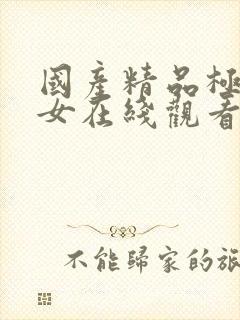 國産精品極
女在綫觀看
不能歸家的旅